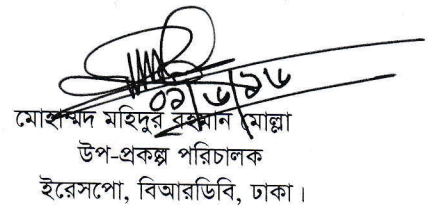 ০১/৬/১৬
মোহাম্মদ মহিদুর রহমান মোল্লা
উপ-প্রকল্প পরিচালক
ইরেসপো, বিআরডিবি, ঢাকা।